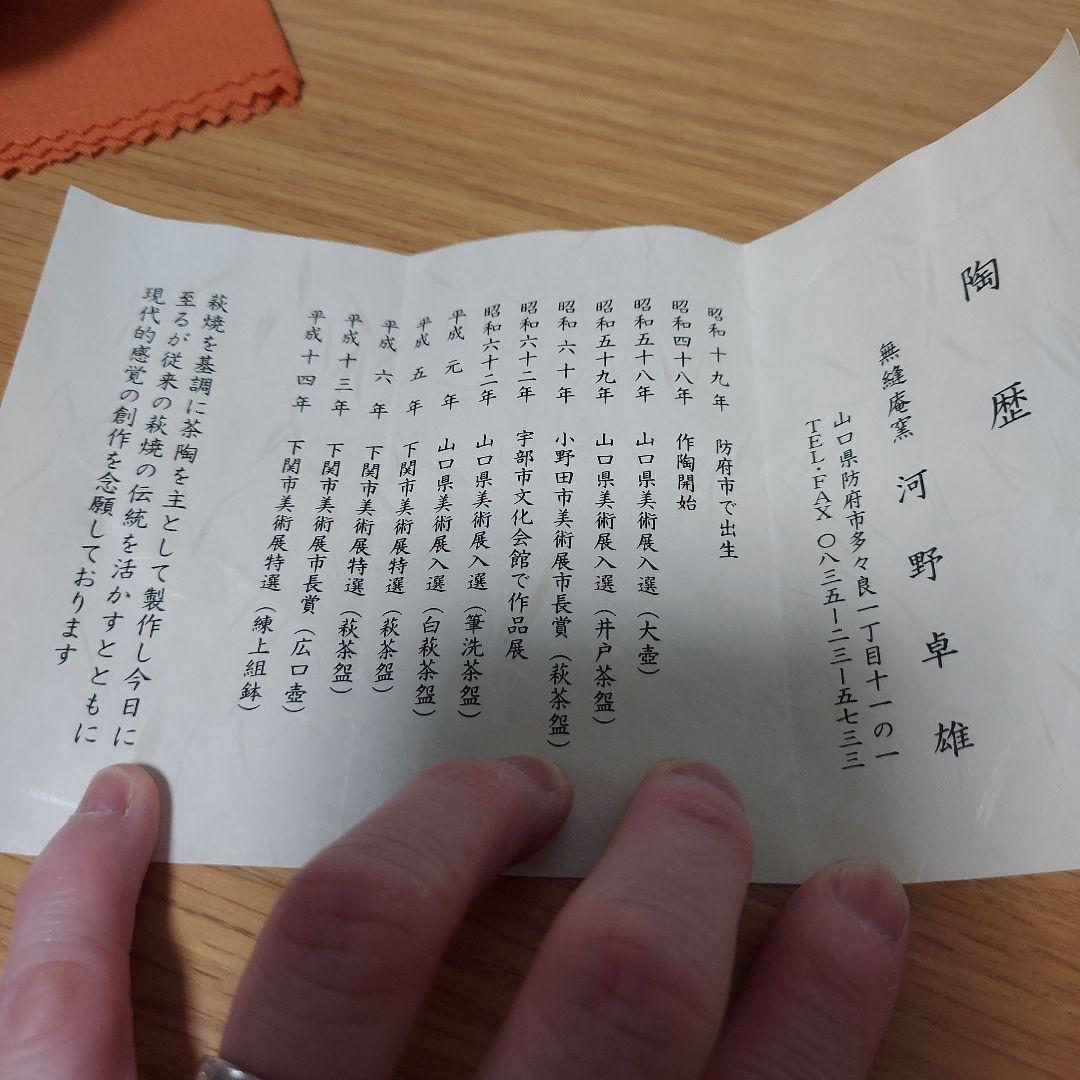 陶歴
無縫庵窯 河野卓雄
山口県防府市多々良一丁目十一の一
TEL・FAX 〇八三五ー二三ー五七三三
昭和十九年 防府市で出生
昭和四十八年 作陶開始
昭和五十八年 山口県美術展入選（大壺）
昭和五十九年 山口県美術展入選（井戸茶盌）
昭和六十年 小野田市美術展市長賞（萩茶盌）
昭和六十二年 宇部市文化会館で作品展
昭和六十二年 山口県美術展入選（筆洗茶盌）
平成元年 山口県美術展入選（白萩茶盌）
平成五年 下関市美術展特選（萩茶盌）
平成六年 下関市美術展特選（萩茶盌）
平成十三年 下関市美術展市長賞（広口壺）
平成十四年 下関市美術展特選（練上組鉢）
萩焼を基調に茶陶を主として製作し今日に
至るが従来の萩焼の伝統を活かすとともに
現代的感覚の創作を念願しております